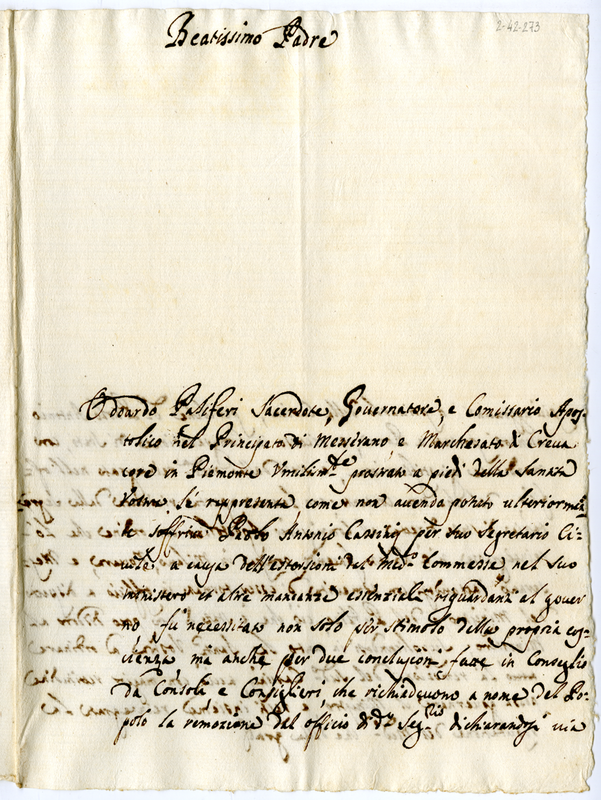 2-42-273
Beatissimo Padre
Odoardo Paliferi Sacerdote, Governatore, e Comissario Apos-
tolico nel Principato di Messerano, e Marchesato di Creva
core in Piemonte Vmilim.te prostrato a piedi della Santità
Vostra, le rappresenta, come non auendo potuto ulteriormen
te soffrire Paolo Antonio per suo Segretario Ci=
uile, a causa dell'estorsioni dal Med.o Commesse nel suo
ministero et altre mancanze essenziali riguardanti al gouer
no, fu necessitato non solo per stimolo della propria cos-
cienza ma anche per due conclusioni fatte in Conseglio
da Consoli e Consiglieri, che richiedeuono a nome del Po-
polo la remozione dal officio di d.o Seg.rio dichiarandosi